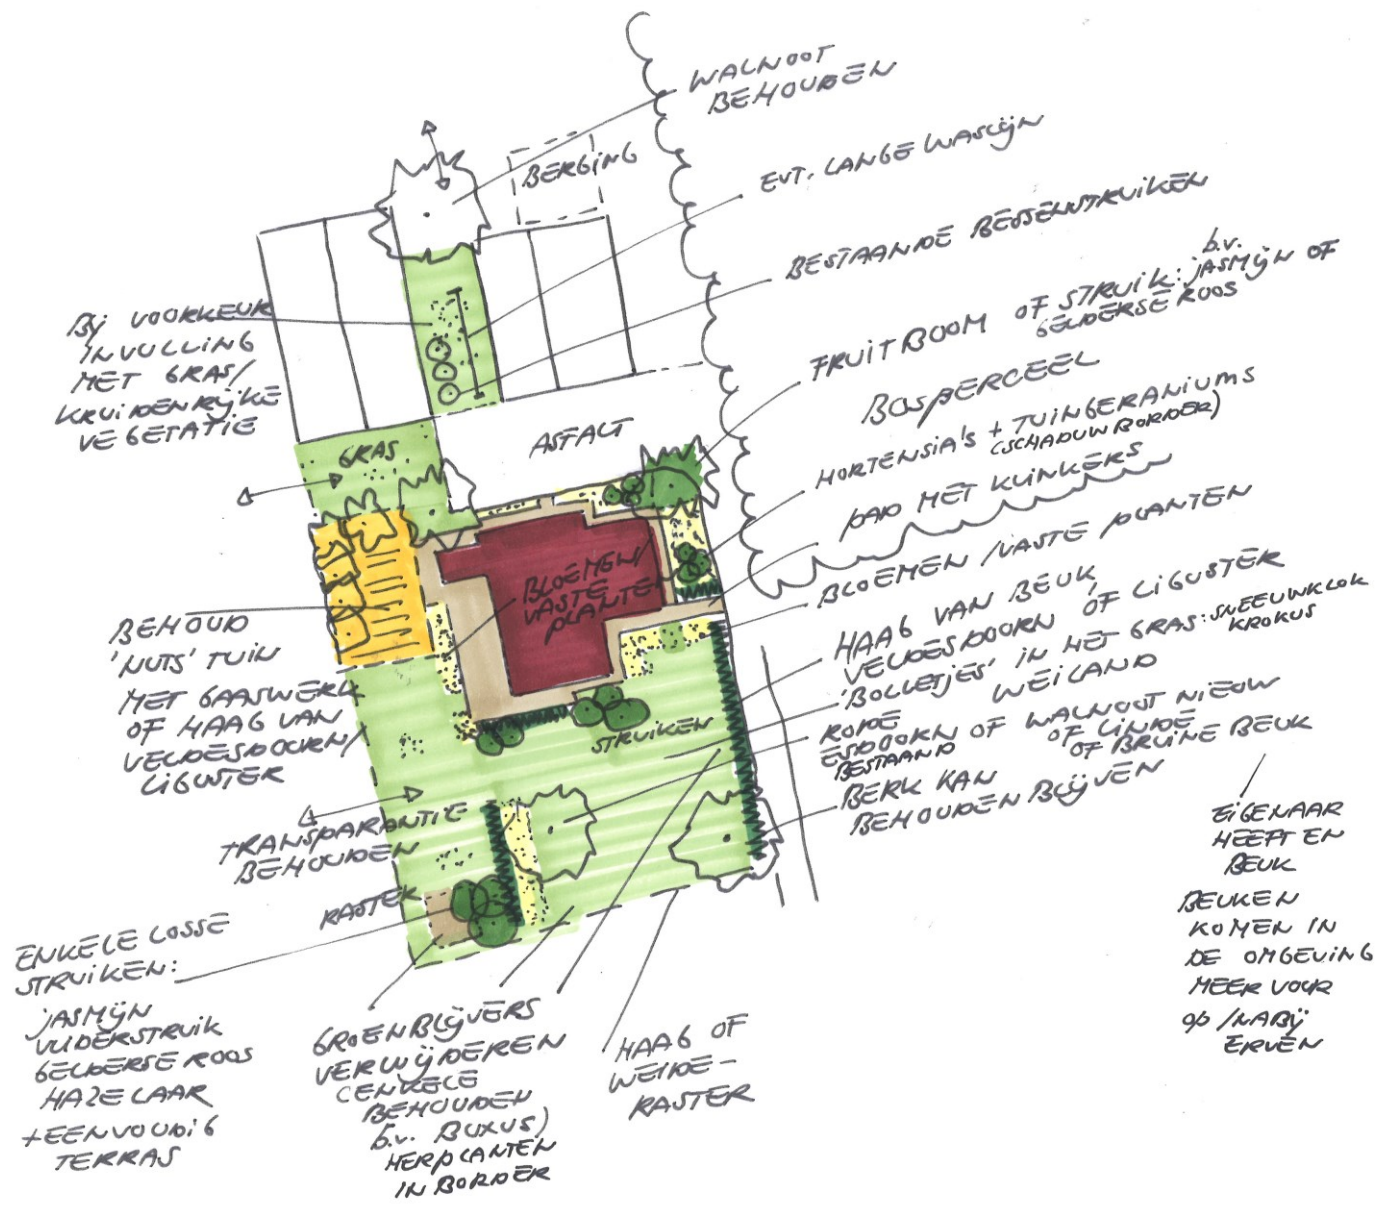 WALNOOT
BEHOUDEN
BERGING
EVT. LANGE WASLIJN
BESTAANDE BESSENSTRUIKEN
b.v.
FRUITBOOM OF STRUIK: JASMIJN OF
GELDERSE ROOS
BOSPERCEEL
HORTENSIA'S + TUINGERANIUMS
(SCHADUWBORDER)
PAD MET KLINKERS
BLOEMEN /VASTE PLANTEN
HAAG VAN BEUK,
VELDESDOORN OF LIGUSTER
'BOLLETJES' IN HET GRAS: SNEEUWKLOK
KROKUS
WEILAND
RODE
ESDOORN OF WALNOOT NIEUW
BESTAAND
OF LINDE
OF BRUINE BEUK
BERK KAN
BEHOUDEN BLIJVEN
EIGENAAR
HEEFT EN
BEUK
BEUKEN
KOMEN IN
DE OMGEVING
MEER VOOR
OP /NABIJ
ERVEN
BIJ VOORKEUR
INVULLING
MET GRAS/
KRUIDENRIJKE
VEGETATIE
GRAS
ASFALT
BLOEMEN/
VASTE
PLANTEN
BEHOUD
'NUTS' TUIN
MET GAASWERK
OF HAAG VAN
VELDESDOORN/
LIGUSTER
STRUIKEN
TRANSPARANTIE
BEHOUDEN
RASTER
ENKELE LOSSE
STRUIKEN:
JASMIJN
VLIDERSTRUIK
GELDERSE ROOS
HAZELAAR
+EENVOUDIG
TERRAS
GROENBLIJVERS
VERWIJDEREN
(ENKELE
BEHOUDEN
b.v. BUXUS)
HERPLANTEN
IN BORDER
HAAG OF
WEIDE-
RASTER